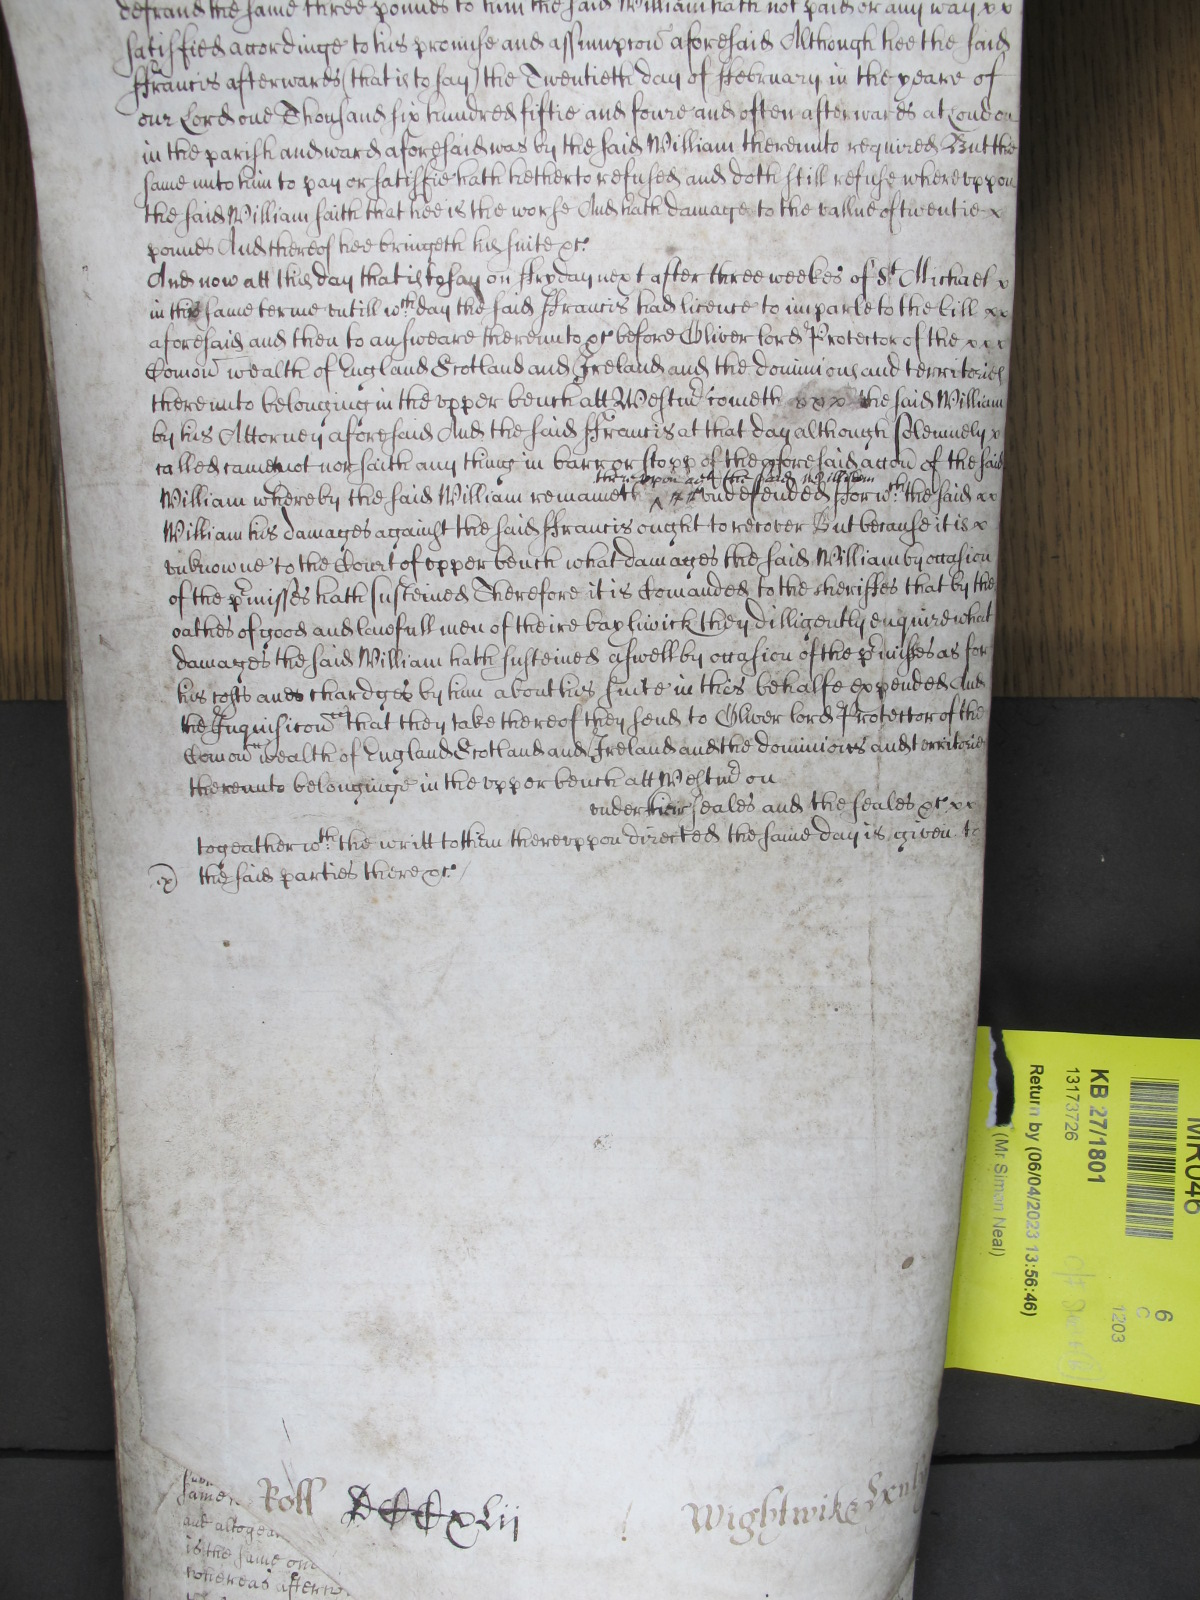 defraud the same three pounds to him the said William hath not paid or any way xx
satisfied accordinge to his promise and assumpcon aforesaid Although hee the said
ffrancis afterwards (that is to say) the Twentieth day of ffebruary in the yeare of
our Lord one Thousand six hundred fiftie and foure and often afterwards at London
in the parish and ward aforesaid was by the said William thereunto required But the
same unto him to pay or satisfie hath hetherto refused and doth still refuse whereuppon
the said William saith that hee is the worse And hath damage to the vallue of twentie x
pounds And thereof hee bringeth his suite &c
And now att this day that is to say on ffryday next after three weekes of St Michael x
in this same terme untill wch day the said ffrancis had licence to imparle to the bill xx
aforesaid and then to answeare thereunto &c before Oliver lord Protector of the xxx
Comon wealth of England Scotland and Ireland and the dominions and territories
thereunto belonging in the upper bench att Westmr cometh xxx the said William
by his Attorney aforesaid And the said ffrancis at that day although solemnely x
called came not nor saith any thing in barr or stopp of the aforesaid accon of the said
thereuppon agt the said William
William whereby the said William remaineth undefended ffor wch the said xx
William his damages against the said ffrancis ought to recover But because it is x
unknowne to the Court of upper bench what damages the said William by occasion
of the p'misses hath susteined Therefore it is Comanded to the sheriffes that by the
oathes of good and lawfull men of theire bayliwick they dilligently enquire what
damages the said William hath susteined aswell by occasion of the p'misses as for
his costs and chardges by him about his suite in this behalfe expended And
the Inquisicon that they take thereof they send to Oliver lord Protector of the
Comon wealth of England Scotland and Ireland and the dominions and territories
thereunto belonginge in the upper bench att Westmr on
under their seales and the seales &c xx
togeather wth the writt to them thereuppon directed the same day is given to
the said parties there &c
Roll DCCCxLii
Wightwike
same
and altogea
is the same
whereas afterw
MR046
KB 27/1801
13173726
Return by (06/04/2023 13:56:46)
(Mr Simon Neal)
6
C
1203